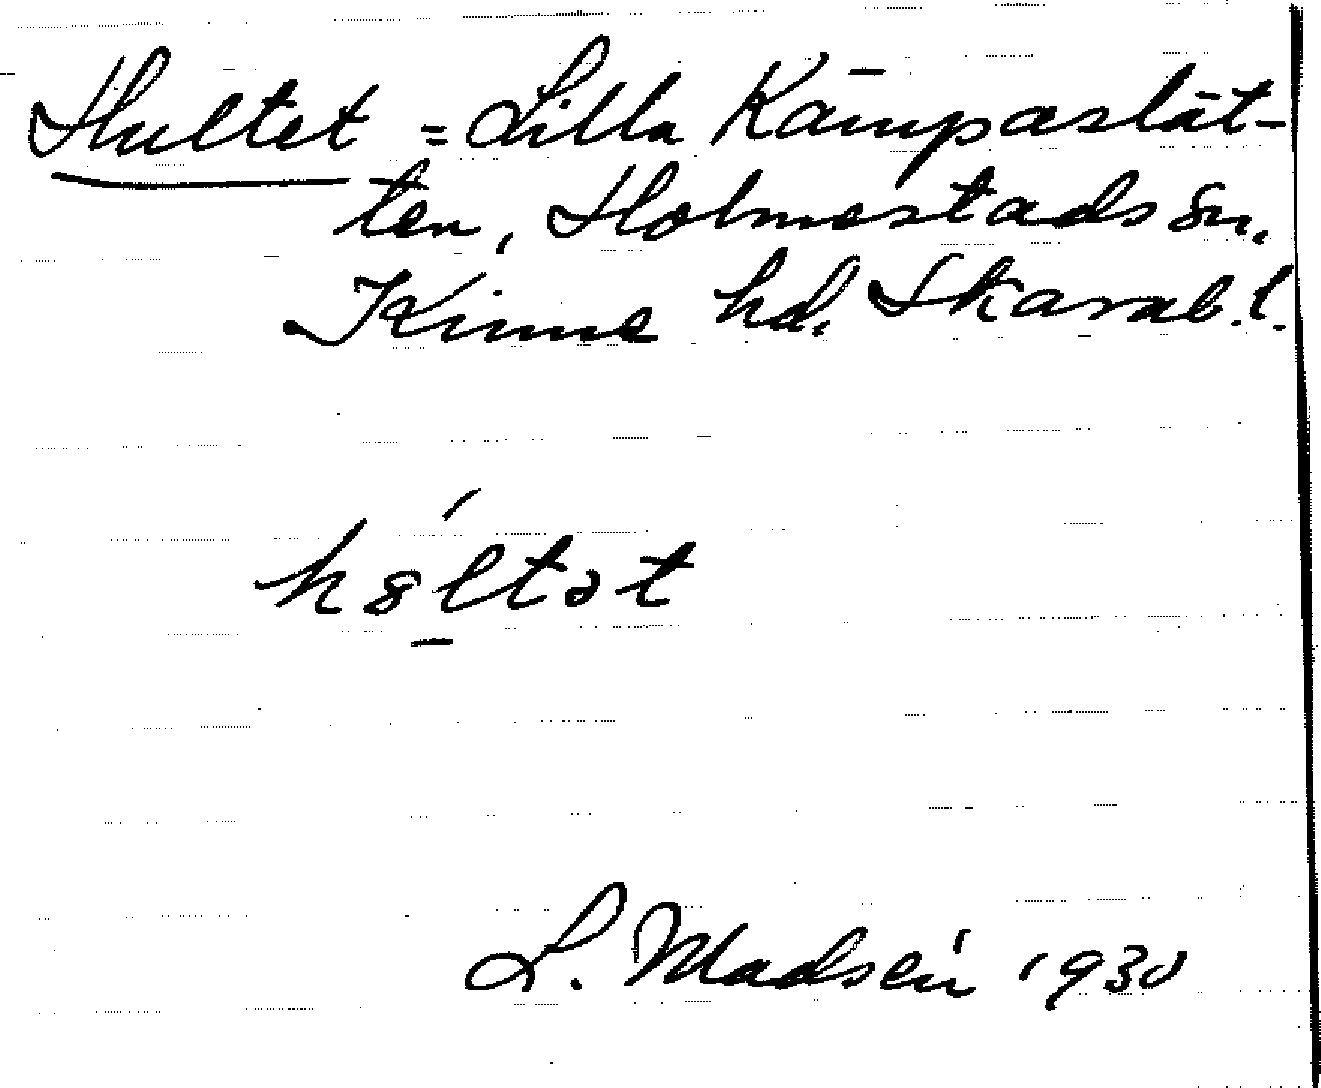 Hultet = Lilla Kämpaslät-
ten, Holmestads sn,
Kinne hd, Skarab. l.
hȣ́ltət
L. Madsén 1930